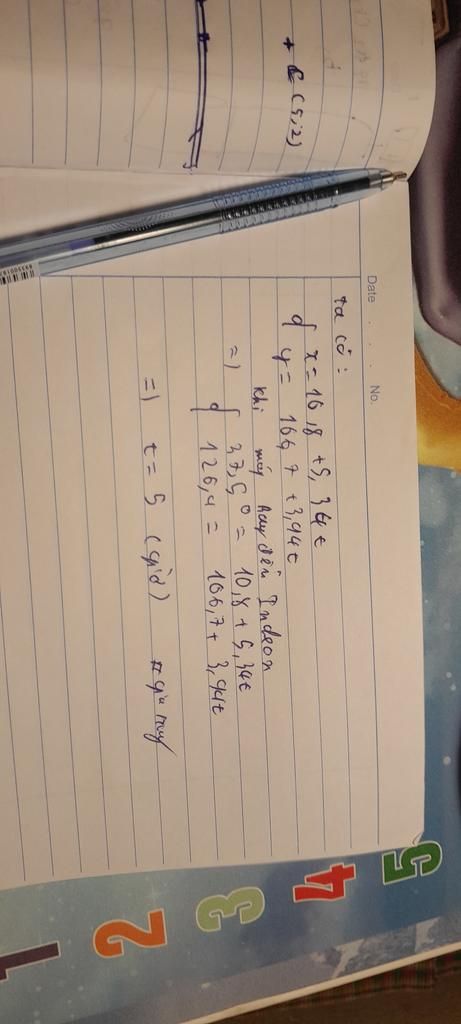 + C (5;2)
Date . . . No.
Ta có:
{ x = 10,8 + 5,34t
y = 106,7 + 3,94t
khi máy bay đến Incheon
=) { 37,50 = 10,8 + 5,34t
126,4 = 106,7 + 3,94t
=) t = 5 (giờ)
1 2 3 4 5